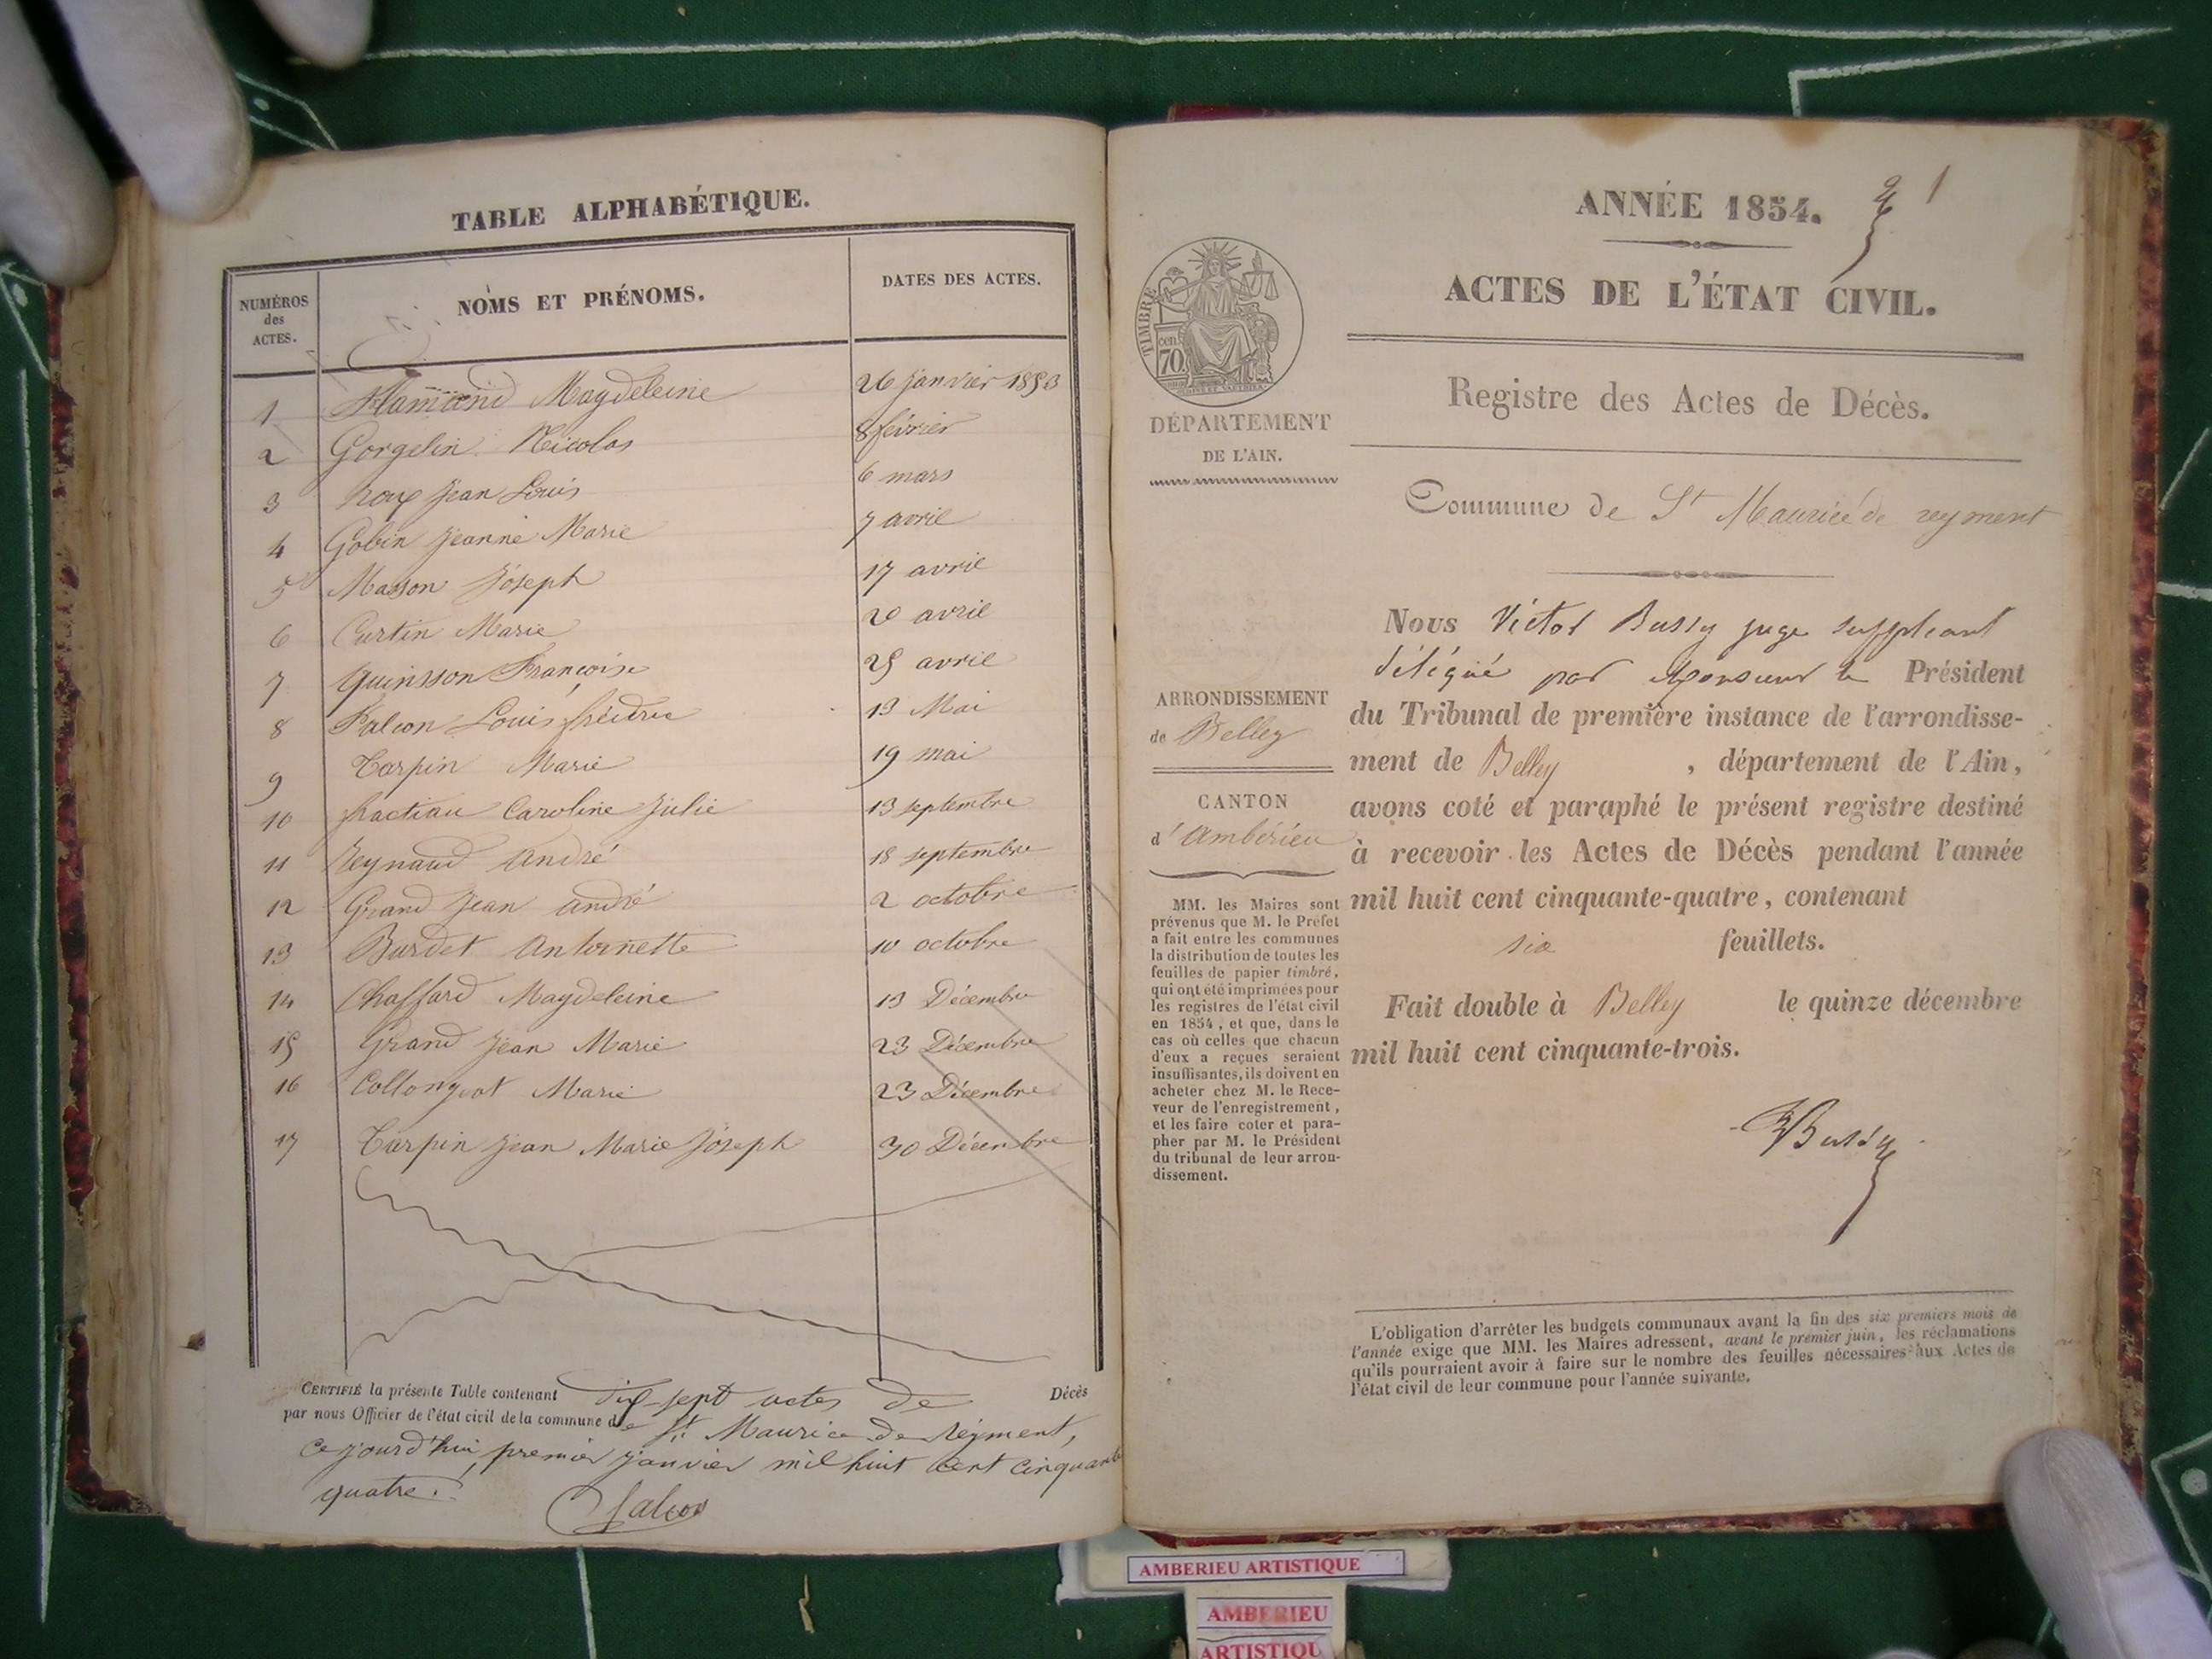 TABLE ALPHABÉTIQUE.
NUMÉROS des ACTES.
NOMS ET PRÉNOMS.
DATES DES ACTES.
1 Magdeleine 26 janvier 1853
2 Gorgelin Nicolas 8 février
3 Roux Jean Louis 6 mars
4 Gobin Jeanne Marie 7 avril
5 Masson Joseph 17 avril
6 Curtin Marie 20 avril
7 Quinsson Françoise 25 avril
8 Falcon Louis frédéric 13 Mai
9 Tarpin Marie 19 mai
10 Caroline Julie 13 septembre
11 Reynaud André 18 septembre
12 Grand Jean André 2 octobre
13 Burdet Antoinette 10 octobre
14 Chaffard Magdeleine 13 Décembre
15 Grand Jean Marie 23 Décembre
16 Collongeat Marie 23 Décembre
17 Tarpin Jean Marie Joseph 30 Décembre
CERTIFIÉ la présente Table contenant dix-sept actes de Décès
par nous Officier de l'état civil de la commune de St Maurice de Rément,
ce jourd'hui premier janvier mil huit cent cinquante
quatre.
Falcon
1
ANNÉE 1854.
ACTES DE L'ÉTAT CIVIL.
Registre des Actes de Décès.
TIMBRE
70 cen.
DÉPARTEMENT
DE L'AIN.
Commune de St Maurice de reyment
ARRONDISSEMENT
de Belley
CANTON
d'Ambérieu
MM. les Maires sont
prévenus que M. le Préfet
a fait entre les communes
la distribution de toutes les
feuilles de papier timbré,
qui ont été imprimées pour
les registres de l'état civil
en 1854, et que, dans le
cas où celles que chacun
d'eux a reçues seraient
insuffisantes, ils doivent en
acheter chez M. le Rece-
veur de l'enregistrement,
et les faire coter et para-
pher par M. le Président
du tribunal de leur arron-
dissement.
Nous Victor Bussy juge suppléant
délégué par Monsieur le Président
du Tribunal de première instance de l'arrondisse-
ment de Belley , département de l'Ain,
avons coté et paraphé le présent registre destiné
à recevoir les Actes de Décès pendant l'année
mil huit cent cinquante-quatre, contenant
six feuillets.
Fait double à Belley le quinze décembre
mil huit cent cinquante-trois.
VBussy
L'obligation d'arrêter les budgets communaux avant la fin des six premiers mois de
l'année exige que MM. les Maires adressent, avant le premier juin, les réclamations
qu'ils pourraient avoir à faire sur le nombre des feuilles nécessaires aux Actes de
l'état civil de leur commune pour l'année suivante.
AMBERIEU ARTISTIQUE
AMBERIEU
ARTISTIQU